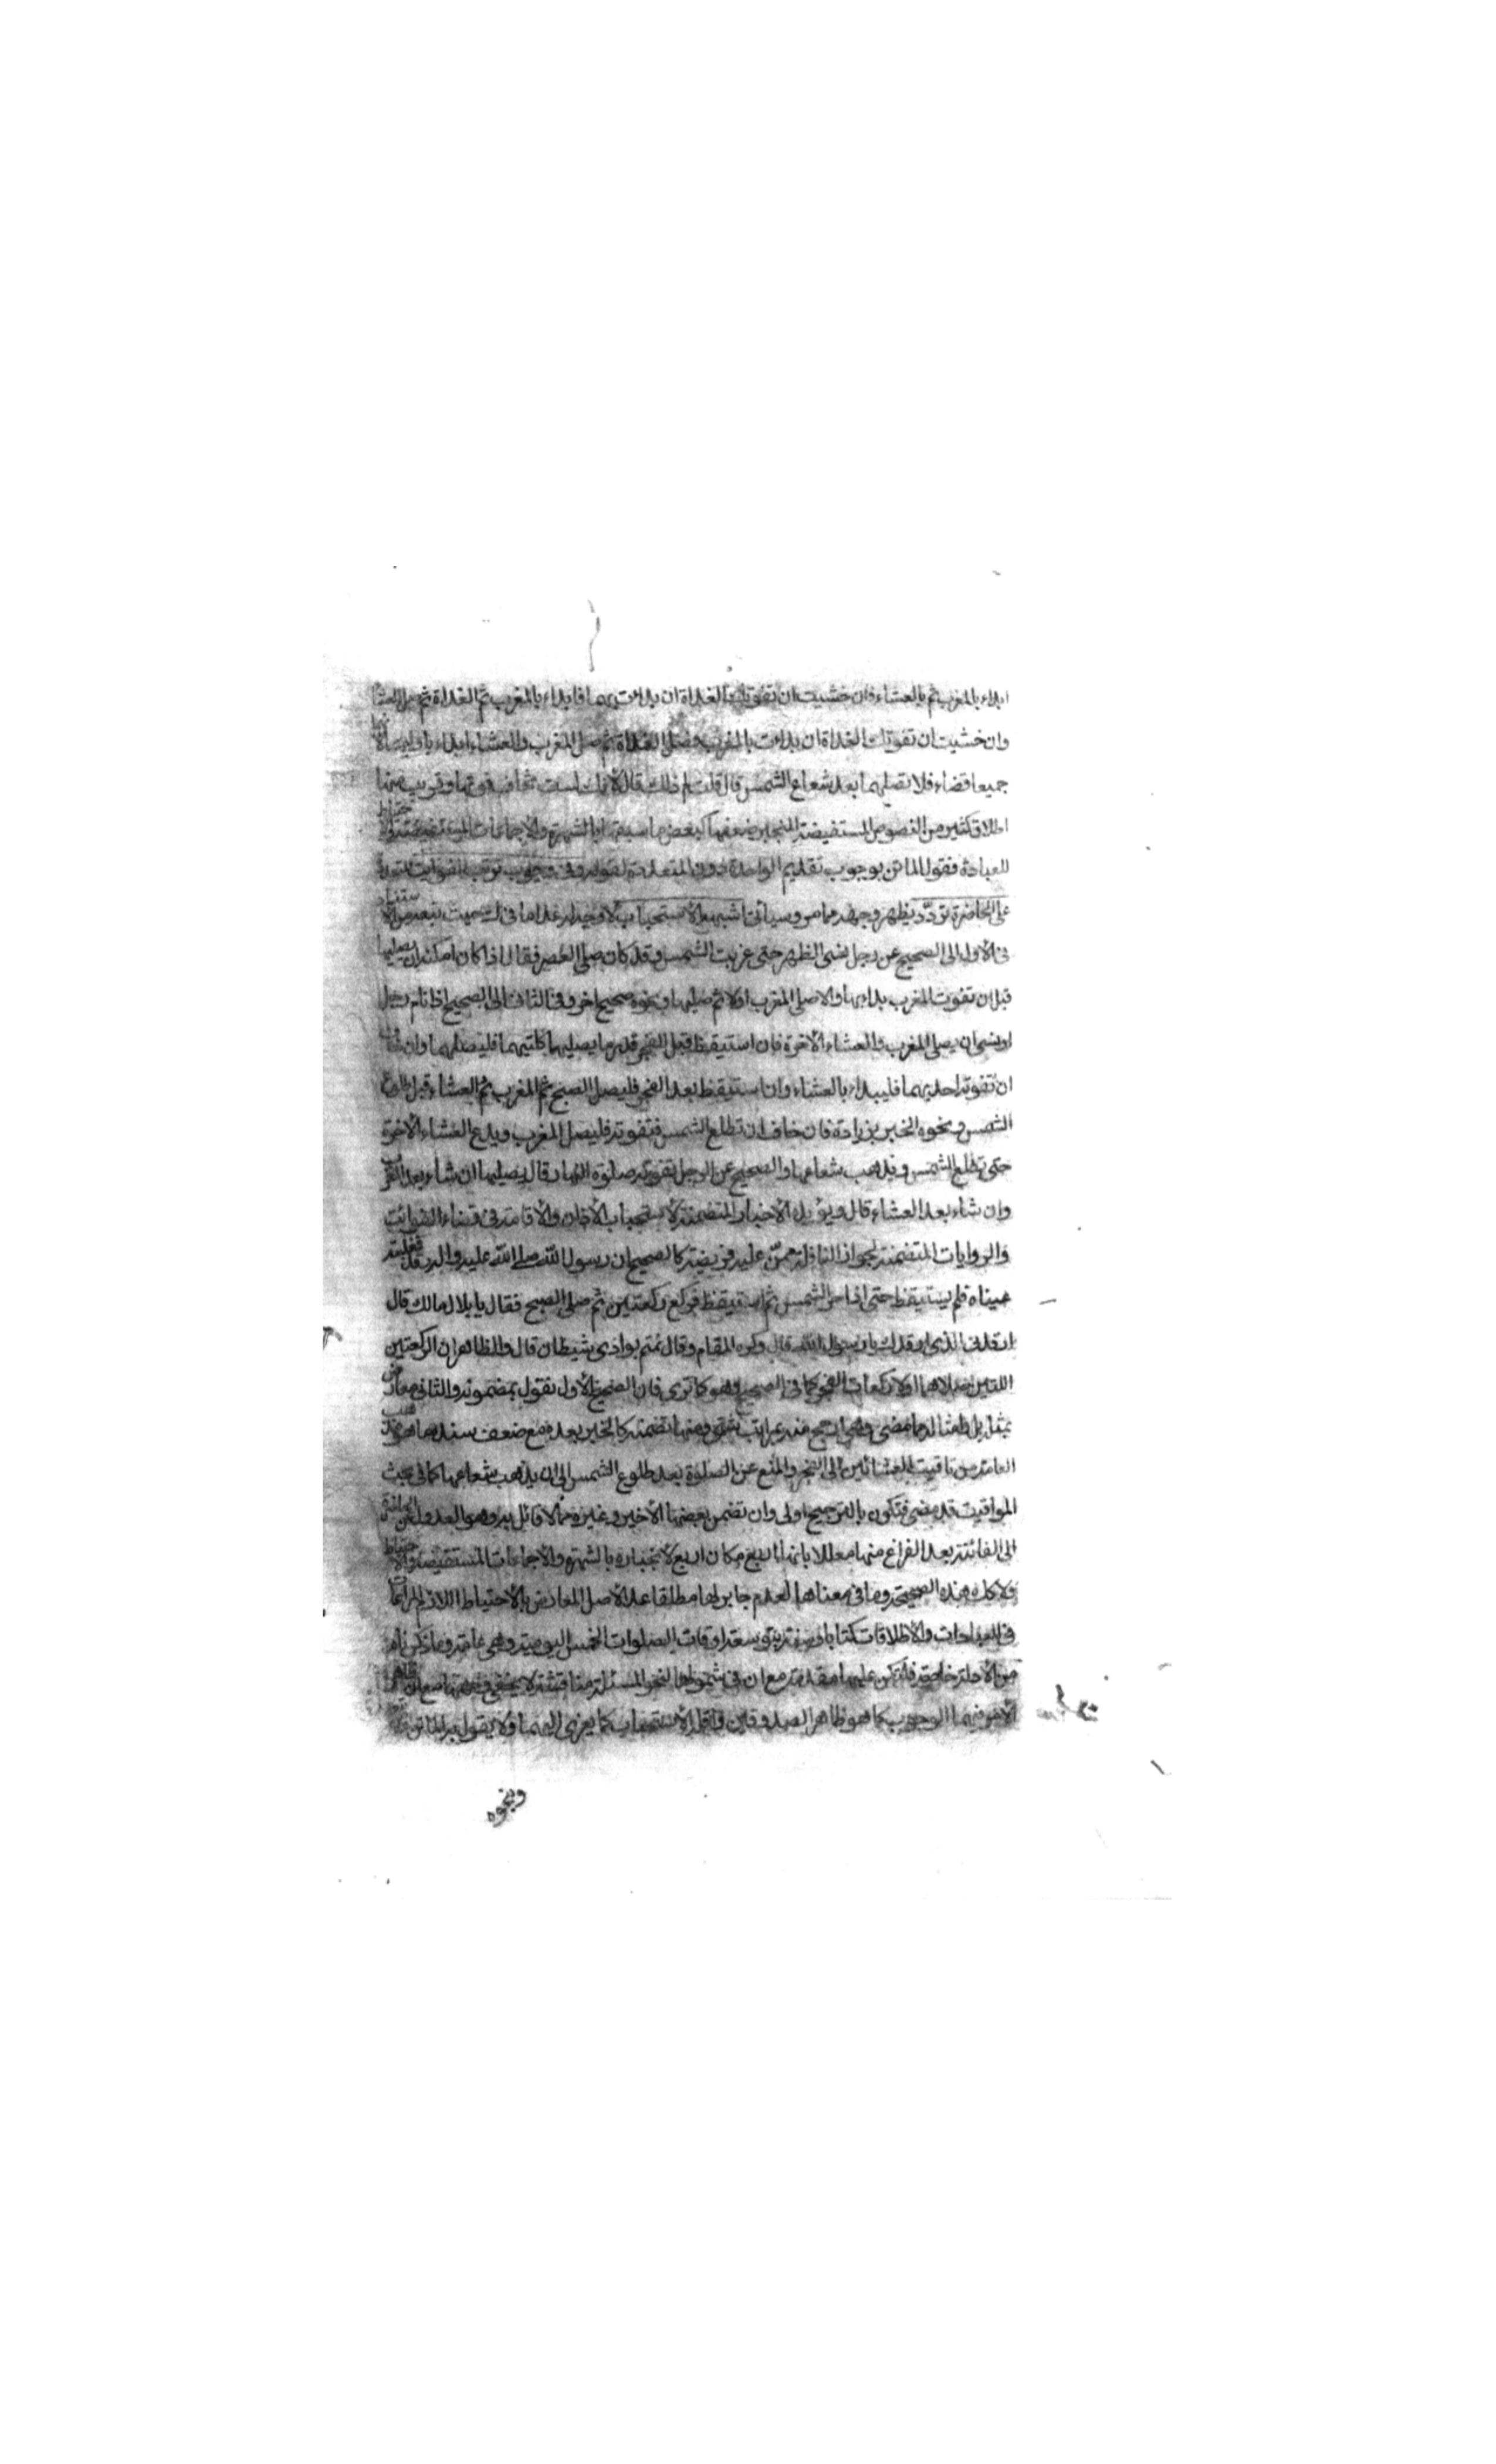 ابداء بالمغرب ثم بالعشاء وان خشيت ان تفوتك الغداة ان بداءت بهما فابداء بالمغرب ثم الغداة ثم صل العشاء
وان خشيت ان تفوتك الغداة ان بداءت بالمغرب فصل الغداة ثم صل المغرب والعشاء ابداء باولهما لانهما
جميعا قضاء فلا تصلهما بعد شعاع الشمس قال قلت لم ذلك قال لانك لست تخاف فوتها وقريب منها
اطلاق كثير من النصوص المستفيضة المنجبر ضعفها كبعض ما سبقها بالشهرة والاجماعات المستفيضة والاحتياط
للعبادة فقول الماتن بوجوب تقديم الواحدة دون المتعددة لقوله وفي وجوب ترتب الفوائت المتعددة
على الحاضرة تردّد يظهر وجهه مما مر وسياتي اشبهه الاستحباب لا وجه له عدا ما في
في الاول الى الصحيح عن رجل نسى الظهر حتى غربت الشمس وقد كان صلى العصر فقال اذا كان امكنه ان يصليها
قبل ان تفوت المغرب بداء بها والا صلى المغرب اولا ثم صليها ونحوه صحيح اخر وفي الثاني الى الصحيح اذا نام رجل
او نسى ان يصلى المغرب والعشاء الاخرة فان استيقظ قبل الفجر قدر ما يصليهما كلتيهما فليصلهما وان خاف
ان تفوته احديهما فليبداء بالعشاء وان استيقظ بعد الفجر فليصل الصبح ثم المغرب ثم العشاء قبل طلوع
الشمس ونحوه الخبر بزيادة فان خاف ان تطلع الشمس فتفوته فليصل المغرب ويدع العشاء الاخرة
حتى تطلع الشمس ويذهب شعاعها والصحيح عن الرجل تفوته صلوة النهار قال يصليها ان شاء بعد المغرب
وان شاء بعد العشاء قال ويؤيده الاخبار المتضمنة لاستحباب الاذان والاقامة في قضاء الفوائت
والروايات المتضمنة لجواز النافلة ممن عليه فريضة كالصحيح ان رسول الله صلى الله عليه واله قد غلبته
عيناه فلم يستيقظ حتى اذاه حر الشمس ثم استيقظ فركع ركعتين ثم صلى الصبح فقال يا بلال مالك قال
ارقدني الذي ارقدك يا رسول الله قال وكره المقام وقال نمتم بوادى شيطان قال والظاهر ان الركعتين
اللتين صلاهما اولا ركعات الفجر كما في الصحيح وهو كما ترى فان الصحيح الاول نقول بمضمونه والثاني معارض
بمثله بل بامثاله مما مضى وهي ارجح منه بمراتب شتى ومنها تضمنه كالخبر بعده مع ضعف سنده ما هو مذهب
العامة من توقيت العشائين الى الفجر والمنع عن الصلوة بعد طلوع الشمس الى ان يذهب شعاعها كما في بحث
المواقيت قد مضى فتكون بالترجيح اولى وان تضمن بعضها الاخير وغيره مما لا قائل به وهو العدول عن الحاضرة
الى الفائتة بعد الفراغ منها معللا بانها اربع مكان اربع لانجباره بالشهرة والاجماعات المستفيضة والاحتياط
ولا كك هذه الصحيحة وما في معناها لعدم جابر لها مطلقا عدا الاصل المعارض بالاحتياط اللازم المراعات
في العبادات والاطلاقات كتابا وسنة بتوسعة اوقات الصلوات الخمس اليومية وهي عامة وما ذكرناه
من الادلة خاصة فلتكن عليها مقدمة مع ان في شمولها لنحو المسئلة مناقشة
الامر فيهما الوجوب كما هو ظاهر الصدوقين لا الاستحباب كما يعزى اليهما ولا يقول به الماتن
ونحوه